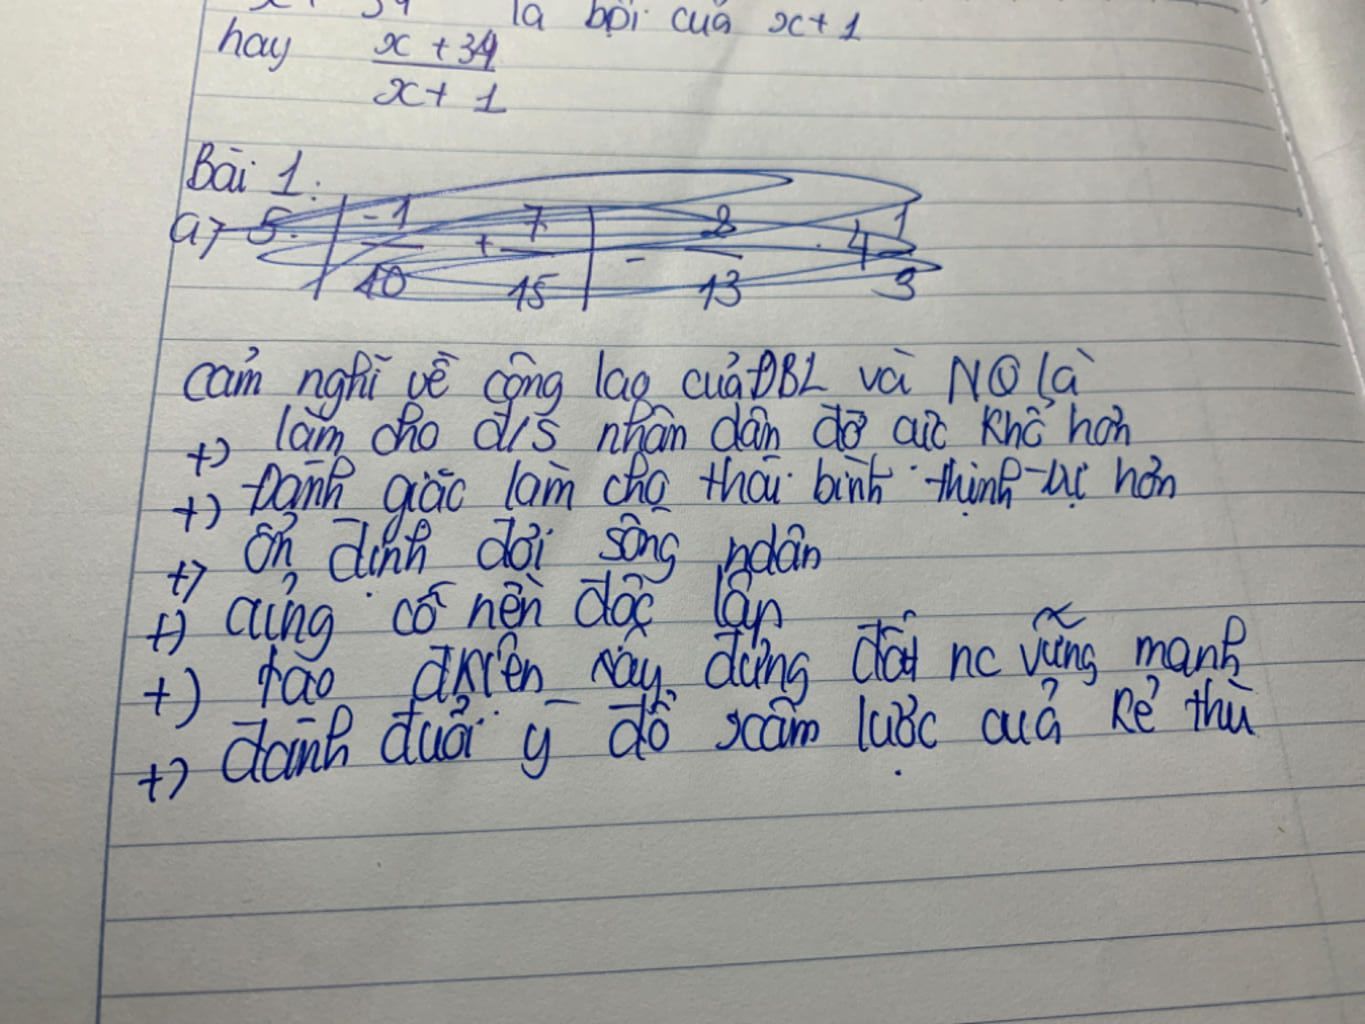 x + 34 là bội của x + 1
hay x + 34 / x + 1
Bài 1:
a) 5. | -1/10 + 7/15 | - 8/13 . 4 1/3
Cảm nghĩ về công lao của ĐBL và NQ là
+) làm cho đ/s nhân dân đỡ cực khổ hơn
+) Đánh giặc làm cho thái bình thịnh trị hơn
+) Ổn định đời sống ndân
+) củng cố nền độc lập
+) tạo đkiện xây dựng đất nc vững mạnh
+) đánh đuổi ý đồ xâm lược của kẻ thù